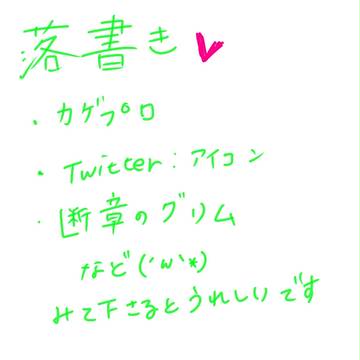 落書き♥
・カゲプロ
・Twitter:アイコン
・断章のグリム
など(´ω`*)
みて下さるとうれしいです